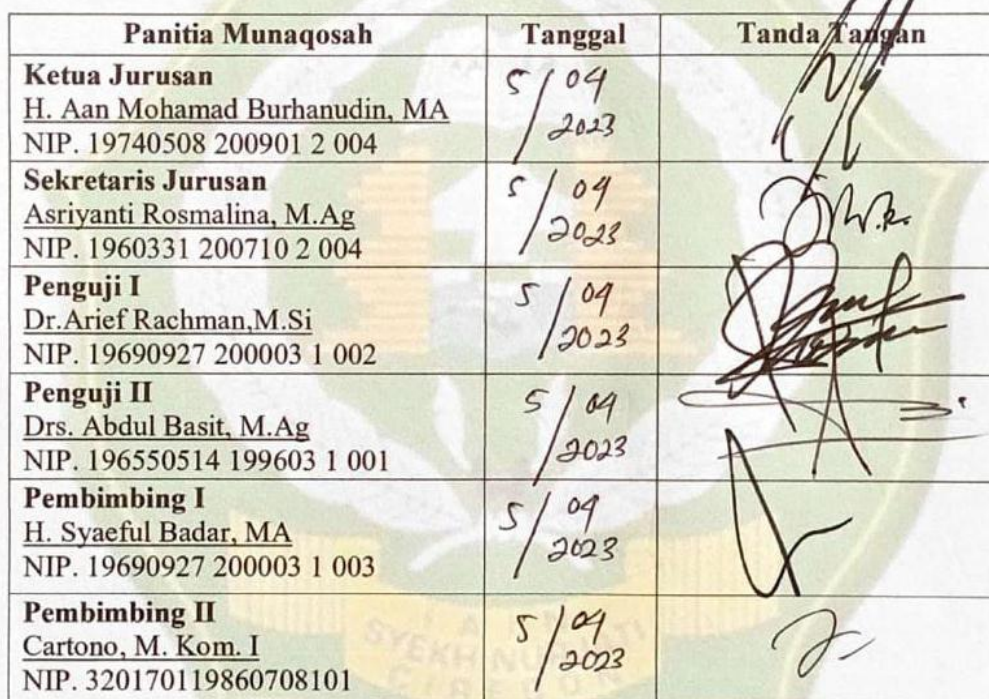 Panitia Munaqosah Tanggal Tanda Tangan
Ketua Jurusan
H. Aan Mohamad Burhanudin, MA
NIP. 19740508 200901 2 004
5/04
2023
Sekretaris Jurusan
Asriyanti Rosmalina, M.Ag
NIP. 1960331 200710 2 004
5/04
2023
Penguji I
Dr.Arief Rachman,M.Si
NIP. 19690927 200003 1 002
5/04
2023
Penguji II
Drs. Abdul Basit, M.Ag
NIP. 196550514 199603 1 001
5/04
2023
Pembimbing I
H. Syaeful Badar, MA
NIP. 19690927 200003 1 003
5/04
2023
Pembimbing II
Cartono, M. Kom. I
NIP. 320170119860708101
5/04
2023
IAIN
SYEKH NURJATI
CIREBON